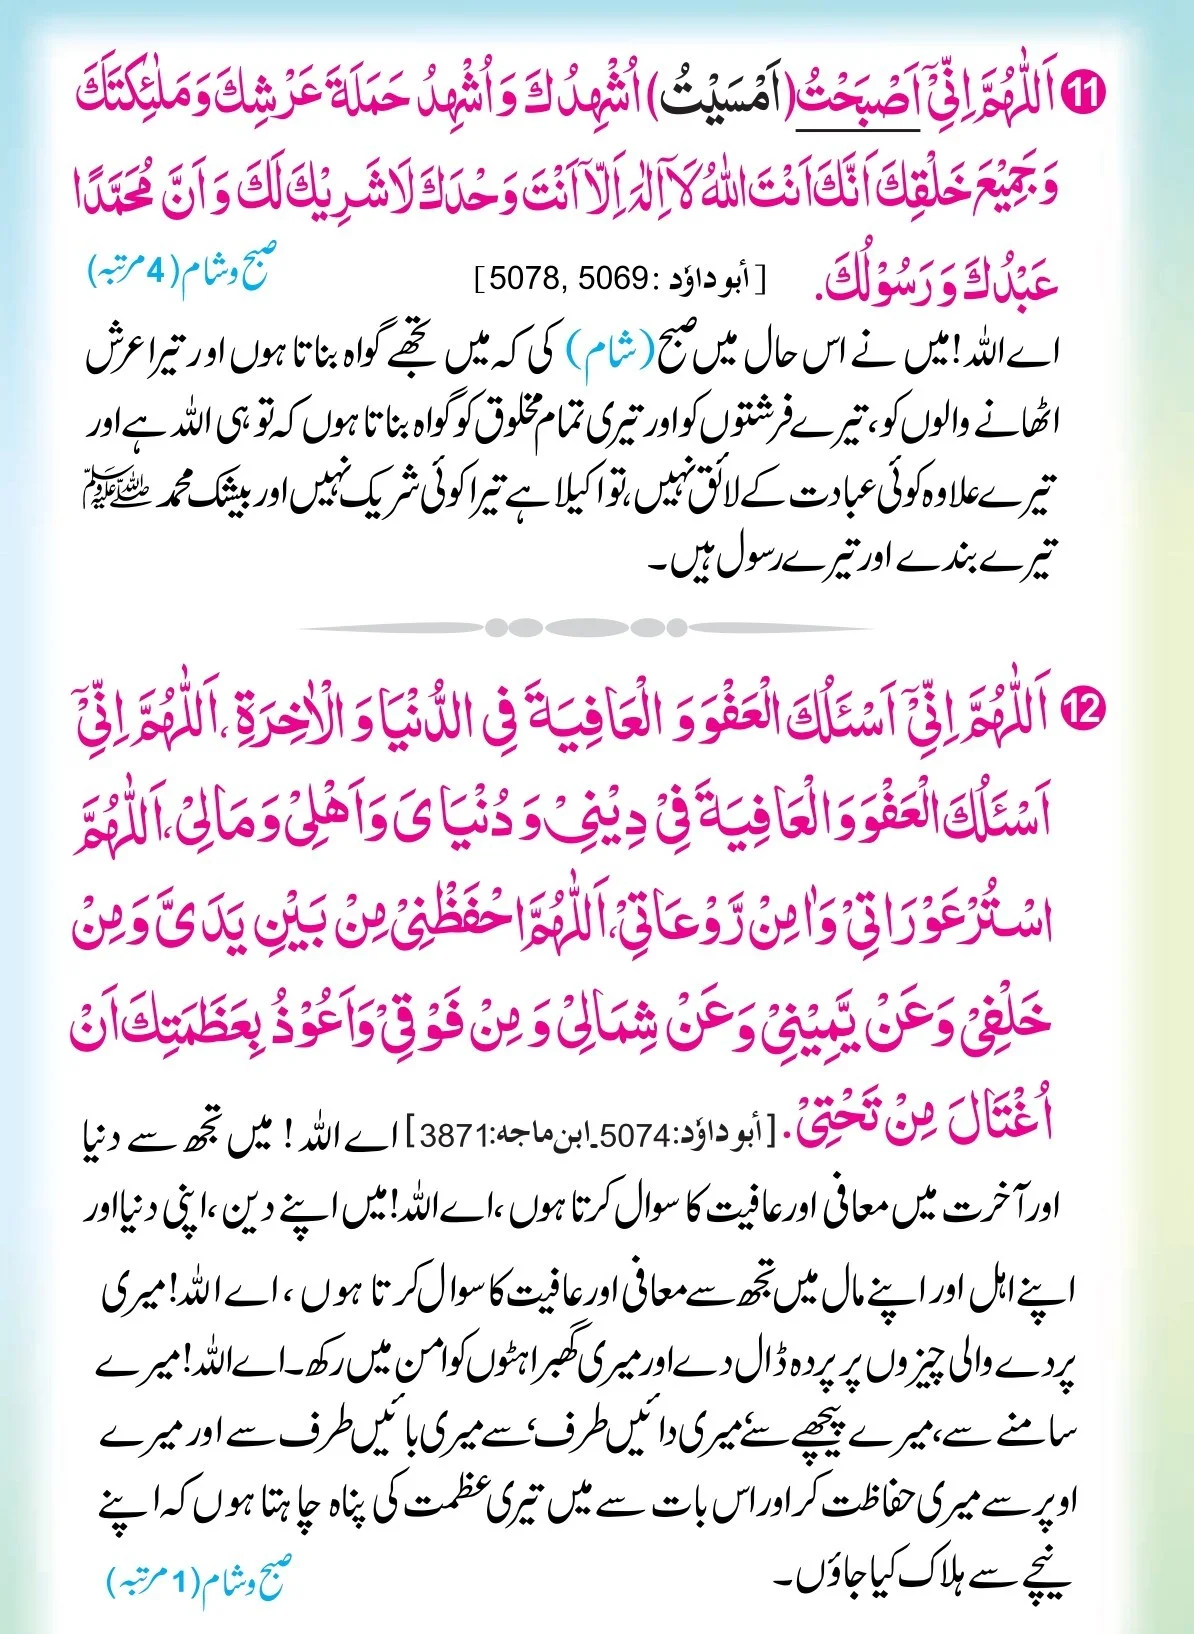 11 اَللّٰهُمَّ اِنِّیْۤ اَصْبَحْتُ (اَمْسَیْتُ) اُشْهِدُكَ وَ اُشْهِدُ حَمَلَةَ عَرْشِكَ وَ مَلٰئِكَتَكَ
وَ جَمِیْعَ خَلْقِكَ اَنَّكَ اَنْتَ اللهُ لَاۤ اِلٰهَ اِلَّاۤ اَنْتَ وَحْدَكَ لَا شَرِیْكَ لَكَ وَ اَنَّ مُحَمَّدًا
عَبْدُكَ وَ رَسُوْلُكَ. [أبو داوٗد: 5069 ,5078] صبح و شام (4 مرتبہ)
اے اللہ! میں نے اس حال میں صبح (شام) کی کہ میں تجھے گواہ بناتا ہوں اور تیرا عرش
اٹھانے والوں کو، تیرے فرشتوں کو اور تیری تمام مخلوق کو گواہ بناتا ہوں کہ تو ہی اللہ ہے اور
تیرے علاوہ کوئی عبادت کے لائق نہیں، تو اکیلا ہے تیرا کوئی شریک نہیں اور بیشک محمد ﷺ
تیرے بندے اور تیرے رسول ہیں۔
12 اَللّٰهُمَّ اِنِّیْۤ اَسْئَلُكَ الْعَفْوَ وَ الْعَافِیَةَ فِی الدُّنْیَا وَ الْاٰخِرَةِ، اَللّٰهُمَّ اِنِّیْۤ
اَسْئَلُكَ الْعَفْوَ وَ الْعَافِیَةَ فِیْ دِیْنِیْ وَ دُنْیَایَ وَ اَهْلِیْ وَ مَالِیْ، اَللّٰهُمَّ
اسْتُرْ عَوْرَاتِیْ وَ اٰمِنْ رَّوْعَاتِیْ، اَللّٰهُمَّ احْفَظْنِیْ مِنْ بَیْنِ یَدَیَّ وَ مِنْ
خَلْفِیْ وَ عَنْ یَّمِیْنِیْ وَ عَنْ شِمَالِیْ وَ مِنْ فَوْقِیْ وَ اَعُوْذُ بِعَظَمَتِكَ اَنْ
اُغْتَالَ مِنْ تَحْتِیْ. [أبو داوٗد: 5074۔ ابن ماجه: 3871] اے اللہ! میں تجھ سے دنیا
اور آخرت میں معافی اور عافیت کا سوال کرتا ہوں، اے اللہ! میں اپنے دین، اپنی دنیا اور
اپنے اہل اور اپنے مال میں تجھ سے معافی اور عافیت کا سوال کرتا ہوں، اے اللہ! میری
پردے والی چیزوں پر پردہ ڈال دے اور میری گھبراہٹوں کو امن میں رکھ۔ اے اللہ! میرے
سامنے سے، میرے پیچھے سے، میری دائیں طرف، سے میری بائیں طرف سے اور میرے
اوپر سے میری حفاظت کر اور اس بات سے میں تیری عظمت کی پناہ چاہتا ہوں کہ اپنے
نیچے سے ہلاک کیا جاؤں۔ صبح و شام (1 مرتبہ)